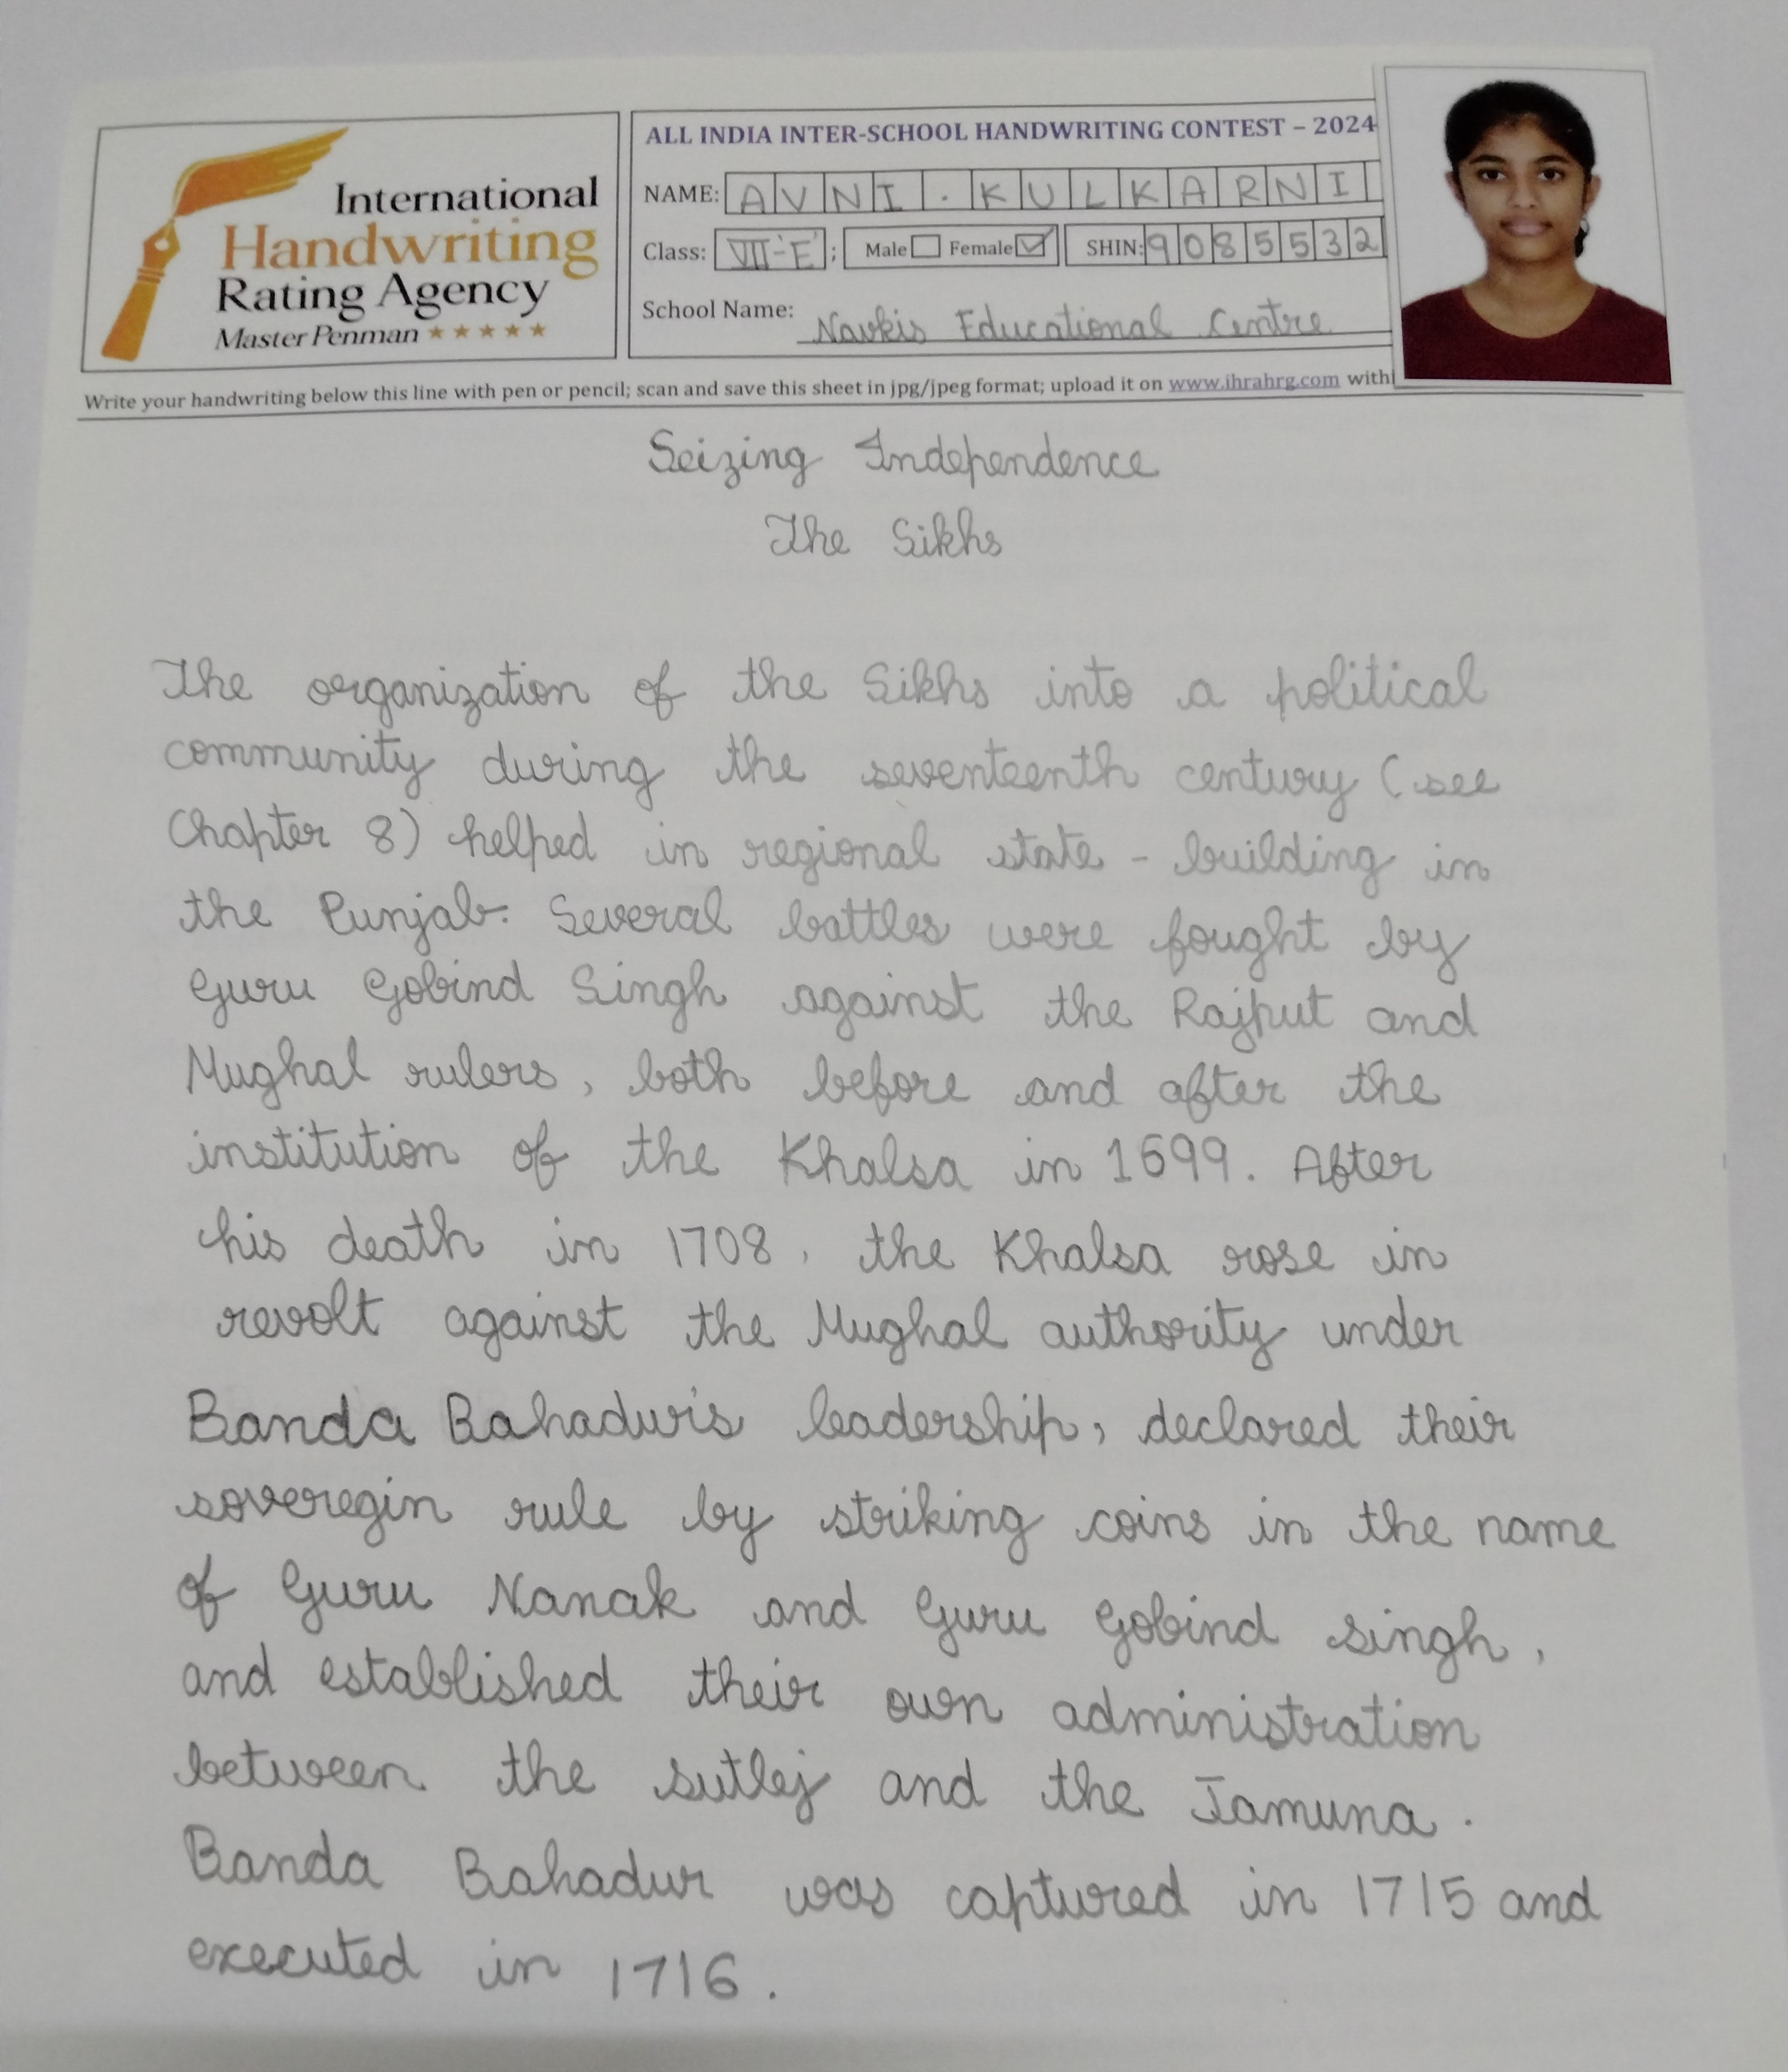 International
Handwriting
Rating Agency
Master Penman ★★★★★
ALL INDIA INTER-SCHOOL HANDWRITING CONTEST – 2024
NAME: AVNI. KULKARNI
Class: VII-'E' ; Male ☐ Female ☑ SHIN: 9085532
School Name: Navkis Educational Centre
Write your handwriting below this line with pen or pencil; scan and save this sheet in jpg/jpeg format; upload it on www.ihrahrg.com with
Seizing Independence
The Sikhs
The organization of the Sikhs into a political
community during the seventeenth century (see
Chapter 8) helped in regional state - building in
the Punjab. Several battles were fought by
Guru Gobind Singh against the Rajput and
Mughal rulers, both before and after the
institution of the Khalsa in 1699. After
his death in 1708, the Khalsa rose in
revolt against the Mughal authority under
Banda Bahadur's leadership, declared their
soveregin rule by striking coins in the name
of Guru Nanak and Guru Gobind singh,
and established their own administration
between the sutlej and the Jamuna.
Banda Bahadur was captured in 1715 and
executed in 1716.